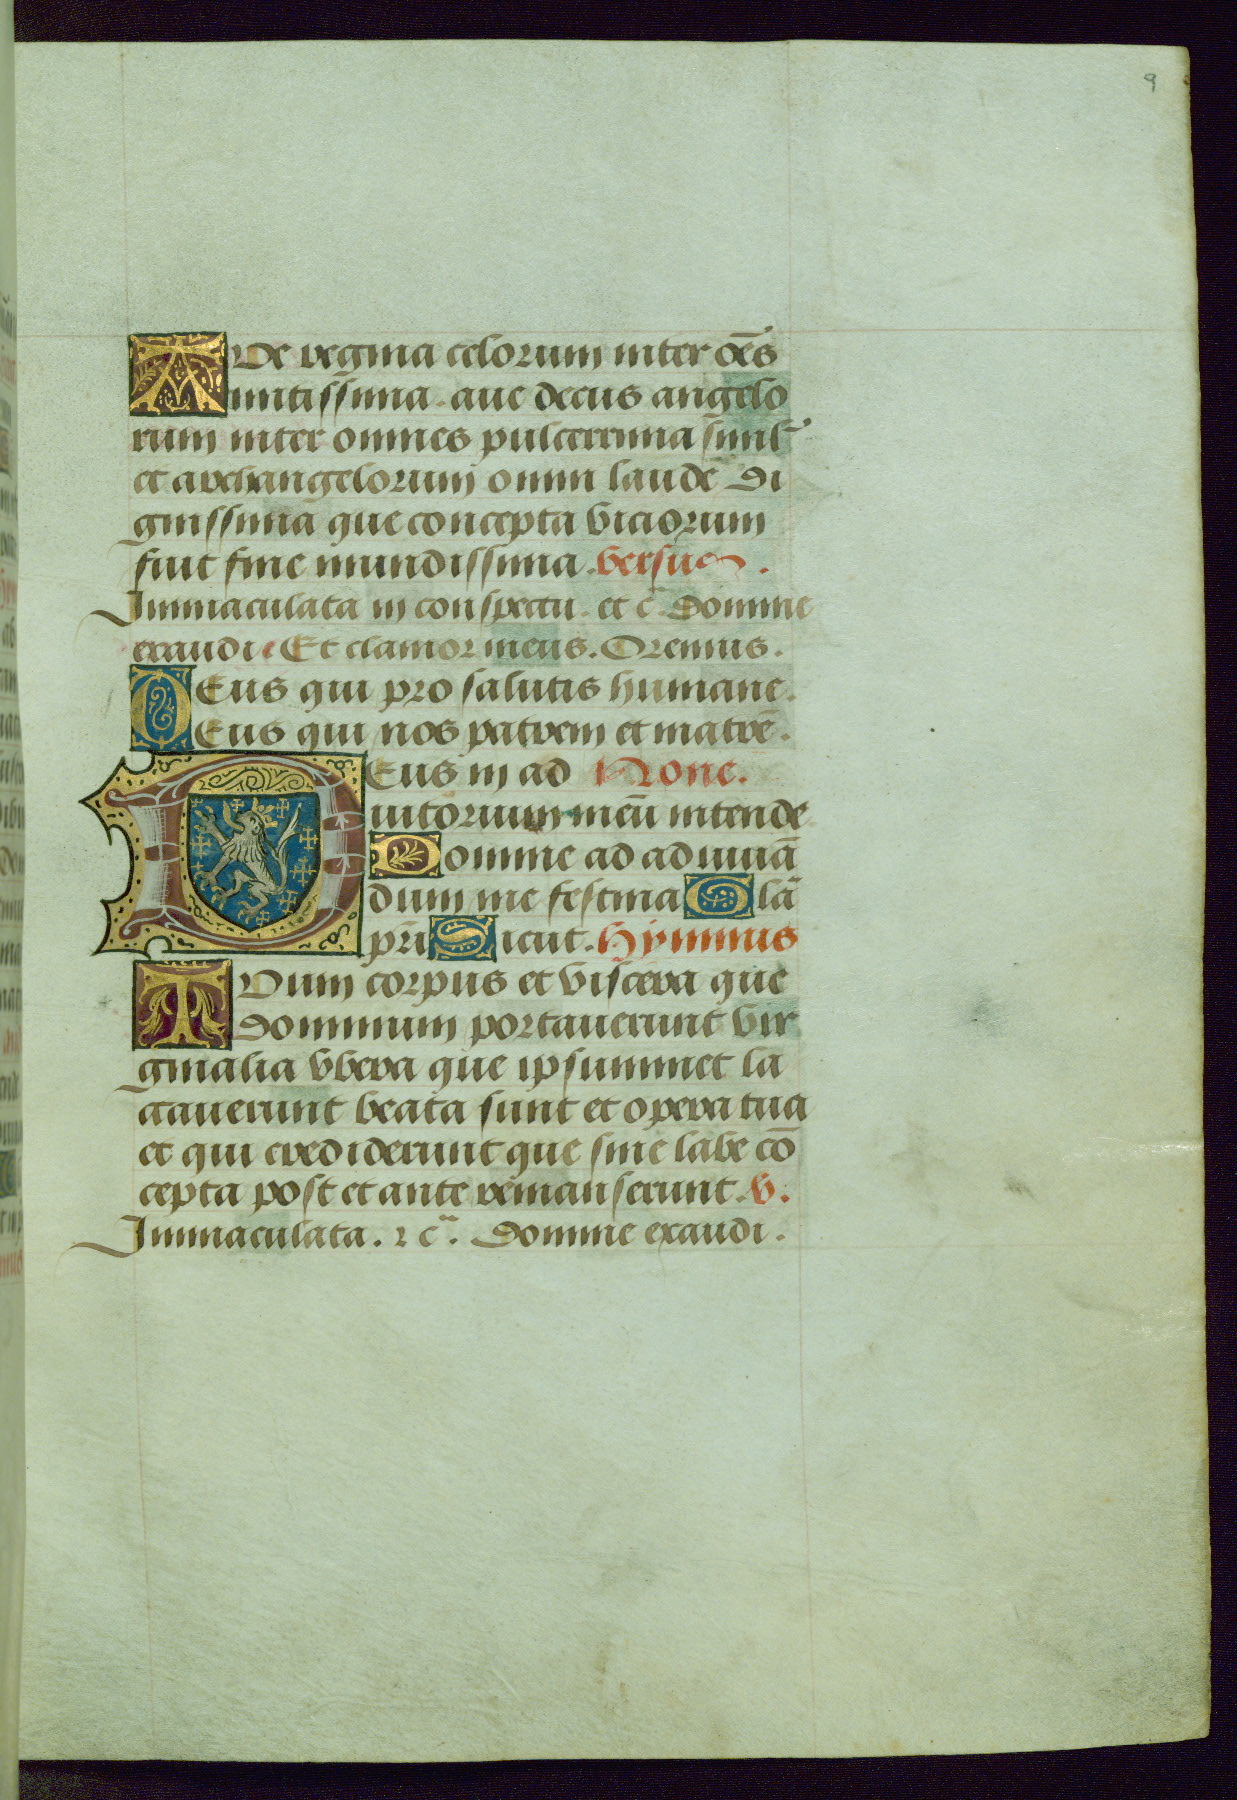 9
AVe regina celorum inter oēs
mitissima. aue decus angelo
rum inter omnes pulcerrima simlʳ
et archangelorum omni laudē di
gnissimā que concepta viciorum
fuit sine mundissima. versus.
Immaculata in conspectu. et c̄. Domine
exaudi. Et clamor meus. Oremus.
DEus qui pro salutis humane.
Eus qui nos patrem et matrē.
DEus in ad None.
iutorium meū intende
Domine ad adiuuā
dum me festina Glā
pr̄i Sicut. Hymnus
TVum corpus et viscera que
dominum portauerunt vir
ginalia vbera que ipsummet la
ctauerunt beata sunt et opera tua
et qui crediderunt que sine labe cō
cepta post et ante remanserunt. V.
Immaculata. ⁊ c̄. Domine exaudi.